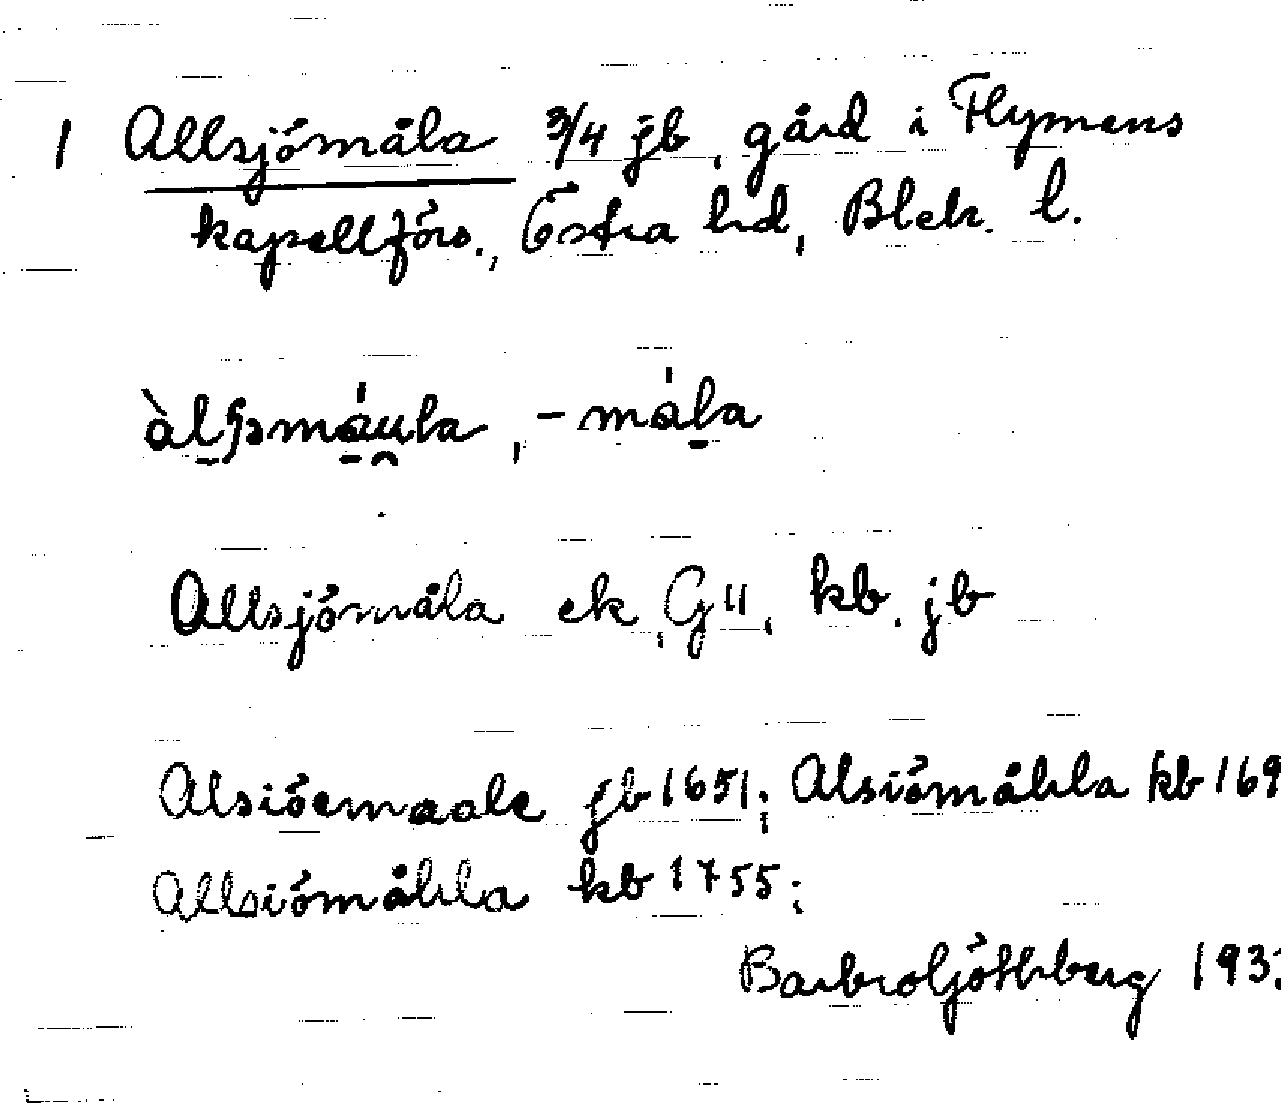 1 Allsjömåla 3/4 jb, gård i Flymens
kapellförs., Östra hd, Blek. l.
-måla
Allsjömåla ek, GII, kb, jb
Alsiöemaale jb 1651; Alsiömåhla kb 169
Allsiömåhla kb 1755;
Barbro Ljöthberg 193